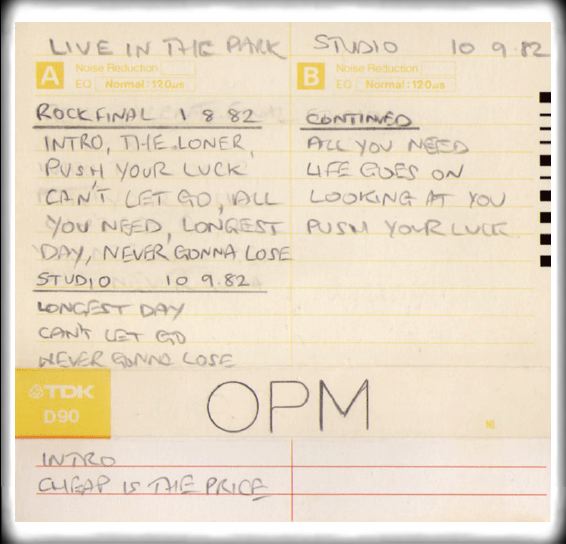 LIVE IN THE PARK
STUDIO 10 9.82
A Noise Reduction
EQ Normal:120μs
B Noise Reduction
EQ Normal:120μs
ROCKFINAL 1 8 82
INTRO, THE LONER,
PUSH YOUR LUCK
CAN'T LET GO, ALL
YOU NEED, LONGEST
DAY, NEVER GONNA LOSE
STUDIO 10 9.82
LONGEST DAY
CAN'T LET GO
NEVER GONNA LOSE
CONTINUED
ALL YOU NEED
LIFE GOES ON
LOOKING AT YOU
PUSH YOUR LUCK
TDK
D90
OPM
INTRO
CHEAP IS THE PRICE